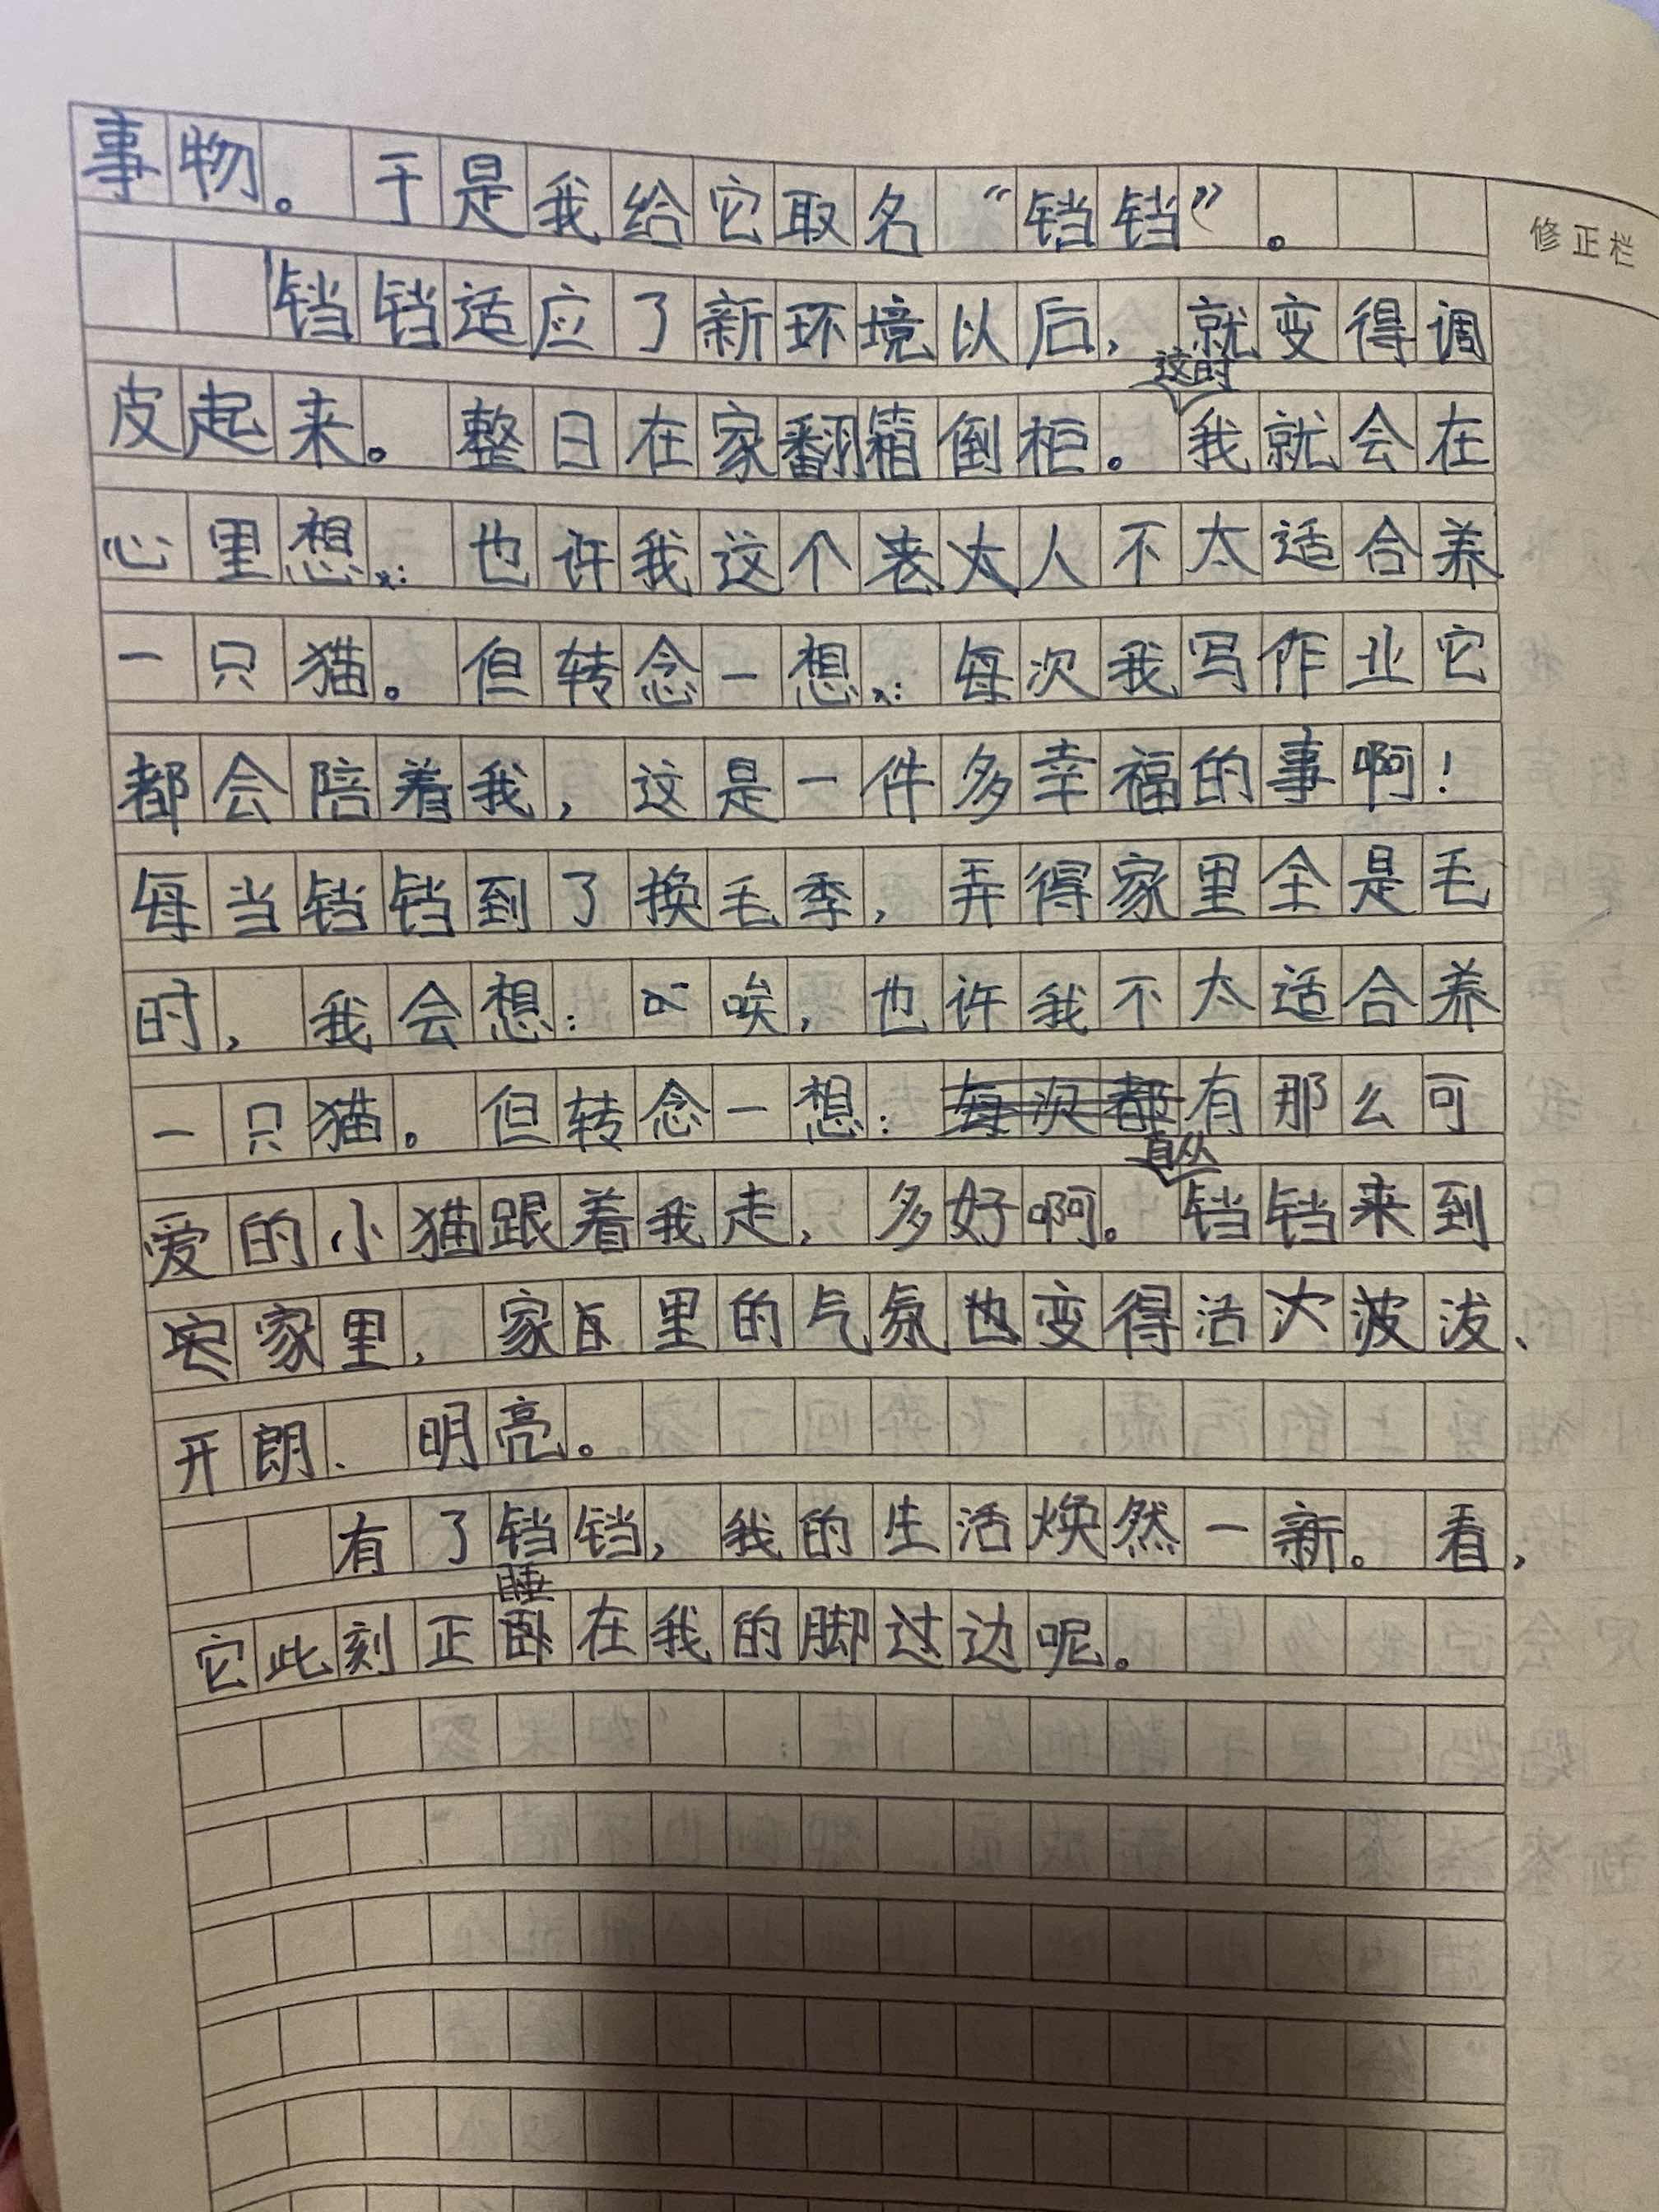 事物。于是我给它取名“铛铛”。
修正栏
铛铛适应了新环境以后，就变得调
皮起来。整日在家翻箱倒柜。这时我就会在
心里想：也许我这个人不太适合养
一只猫。但转念一想：每次我写作业它
都会陪着我，这是一件多幸福的事啊！
每当铛铛到了换毛季，弄得家里全是毛
时，我会想：唉，也许我不太适合养
一只猫。但转念一想：有那么可
爱的小猫跟着我走，多好啊。自从铛铛来到
家里，家里的气氛也变得活泼、
开朗、明亮。
有了铛铛，我的生活焕然一新。看，
它此刻正睡在我的脚边呢。